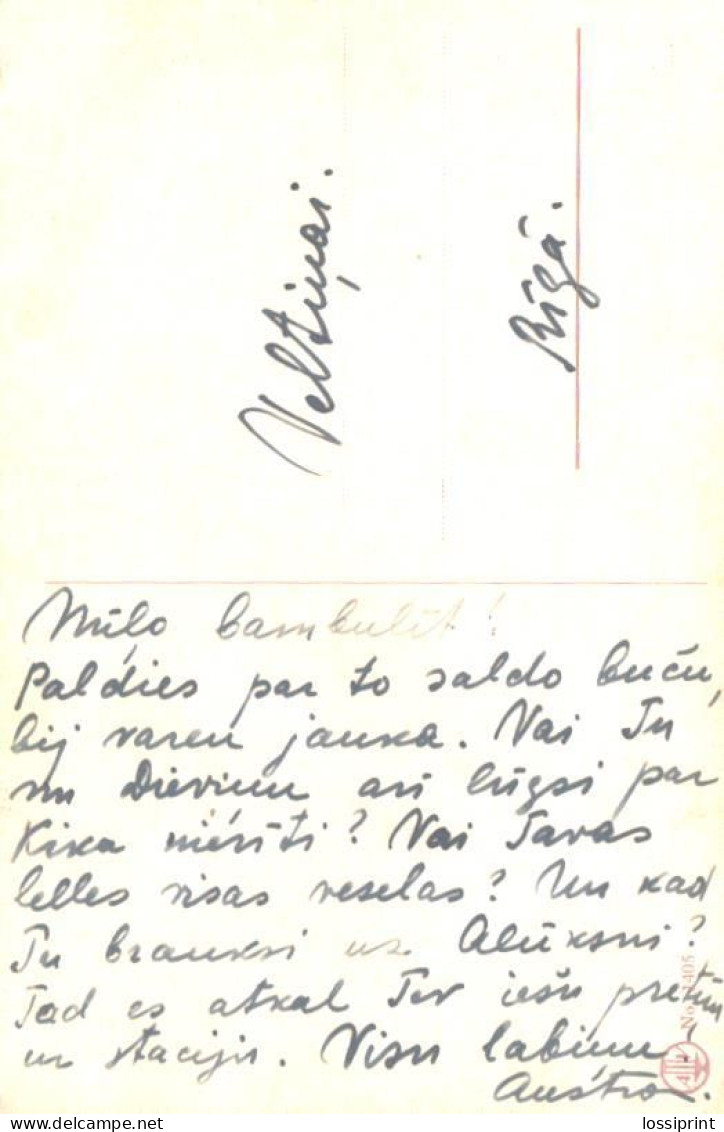 Veltiņai.
Rīgā.
Mīļo bambulīt!
Paldies par to saldo buču,
bij varen jauka. Vai Tu
nu Dieviņu arī lūgsi par
Kika
lelles visas veselas? Un kad
Tu brauksi uz Alūksni?
Tad es atkal Tev iešu pretim
uz staciju. Visu labiņu
Austra.
No 1405
lossiprint